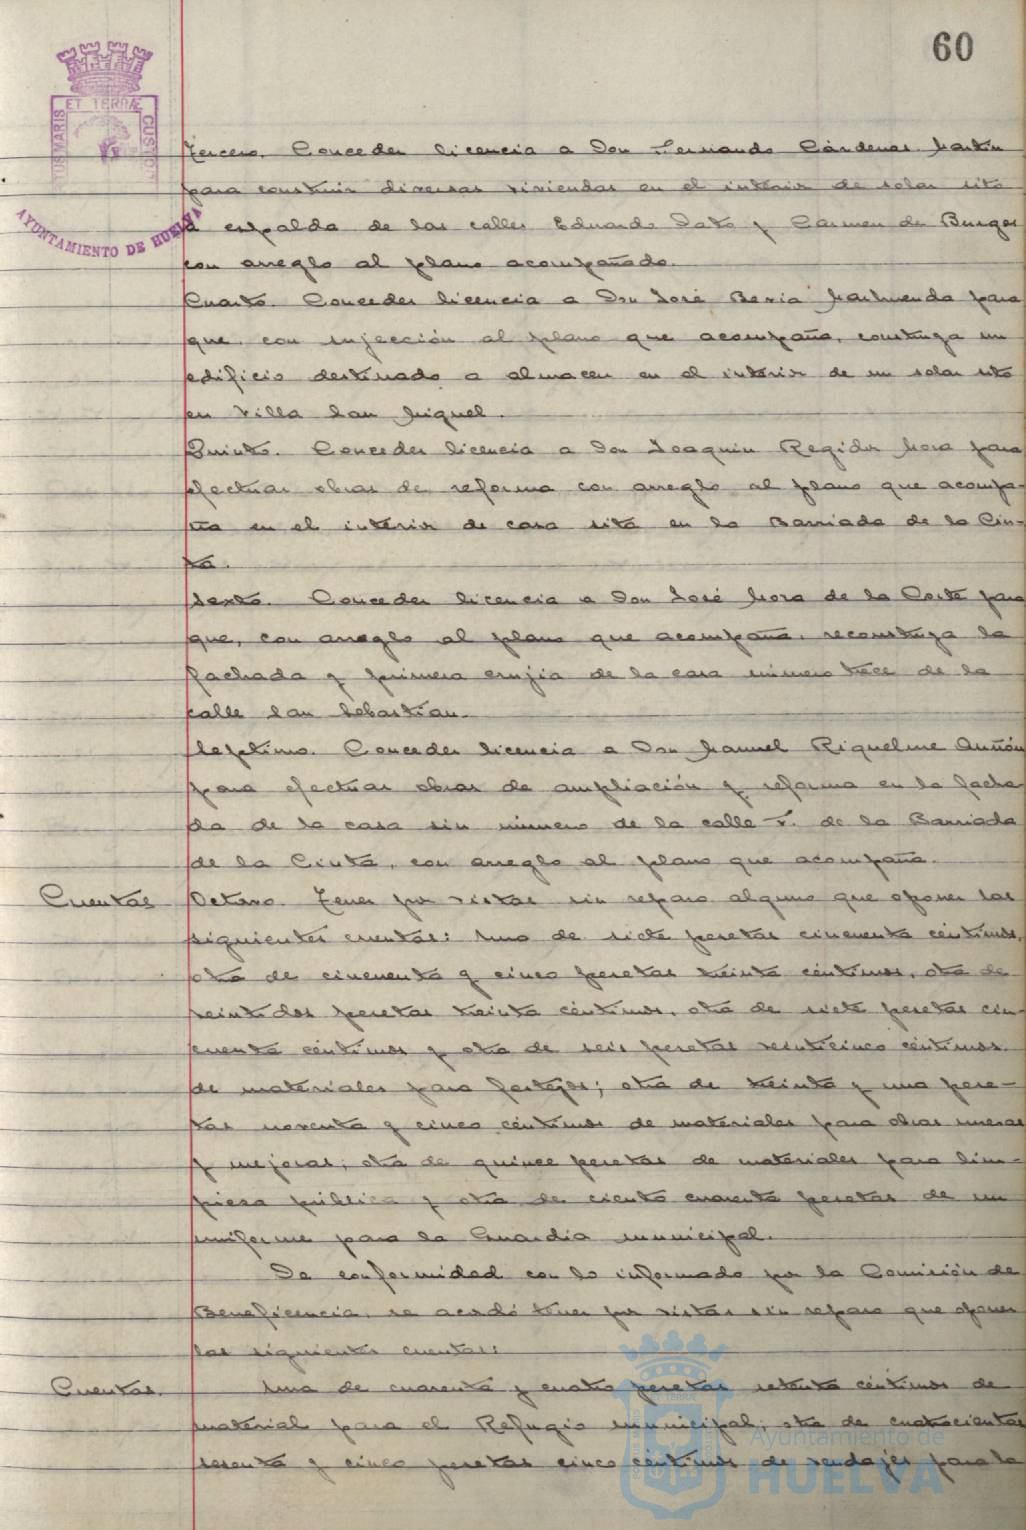 60
ET TERRÆ
PORTUS MARIS
CUSTODIA
AYUNTAMIENTO DE HUELVA
Tercero. Conceder licencia a Don Fernando Cárdenas Martín
para construir diversas viviendas en el interior de solar sito
a espalda de las calles Eduardo Dato y Carmen de Burgos
con arreglo al plano acompañado.
Cuarto. Conceder licencia a Don José Beria para
que, con sujección al plano que acompaña, construya un
edificio destinado a almacen en el interior de un solar sito
en Villa San Miguel.
Quinto. Conceder licencia a Don Joaquin Regidor Mora para
efectuar obras de reforma con arreglo al plano que acompa-
ña en el interior de casa sita en la Barriada de la Cin-
ta.
Sexto. Conceder licencia a Don José Mora de la Corte para
que, con arreglo al plano que acompaña, reconstruya la
fachada y primera crujia de la casa número trece de la
calle San Sebastian.
Septimo. Conceder licencia a Don Manuel Riquelme Auñón
para efectuar obras de ampliación y reforma en la facha
da de la casa sin número de la calle F. de la Barriada
de la Cinta, con arreglo al plano que acompaña.
Cuentas Octavo. Tener por vistas sin reparo alguno que oponer las
siguientes cuentas: Una de siete pesetas cincuenta céntimos,
otra de cincuenta y cinco pesetas treinta céntimos, otra de
veintidos pesetas treinta céntimos, otra de siete pesetas cin-
cuenta céntimos y otra de seis pesetas veinticinco céntimos.
de materiales para festejos; otra de treinta y una pese-
tas noventa y cinco céntimos de materiales para obras nuevas
y mejoras; otra de quince pesetas de materiales para lim-
pieza pública y otra de ciento cuarenta pesetas de un
uniforme para la Guardia municipal.
De conformidad con lo informado por la Comisión de
Beneficencia, se acordó tener por vistas sin reparo que oponer
las siguientes cuentas:
Cuentas. Una de cuarenta y cuatro pesetas setenta céntimos de
material para el Refugio municipal; otra de cuatrocientas
sesenta y cinco pesetas cinco céntimos de vendajes para la
Ayuntamiento de
HUELVA